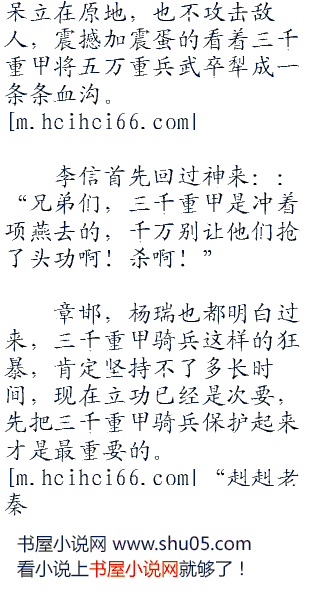 呆立在原地，也不攻击敌
人，震撼加震蛋的看着三千
重甲将五万重兵武卒犁成一
条条血沟。
[m.hcihci66.com]
李信首先回过神来：：
“兄弟们，三千重甲是冲着
项燕去的，千万别让他们抢
了头功啊！杀啊！”
章邯，杨瑞也都明白过
来，三千重甲骑兵这样的狂
暴，肯定坚持不了多长时
间，现在立功已经是次要，
先把三千重甲骑兵保护起来
才是最重要的。
[m.hcihci66.com]“赳赳老
秦
书屋小说网 www.shu05.com
看小说上书屋小说网就够了！